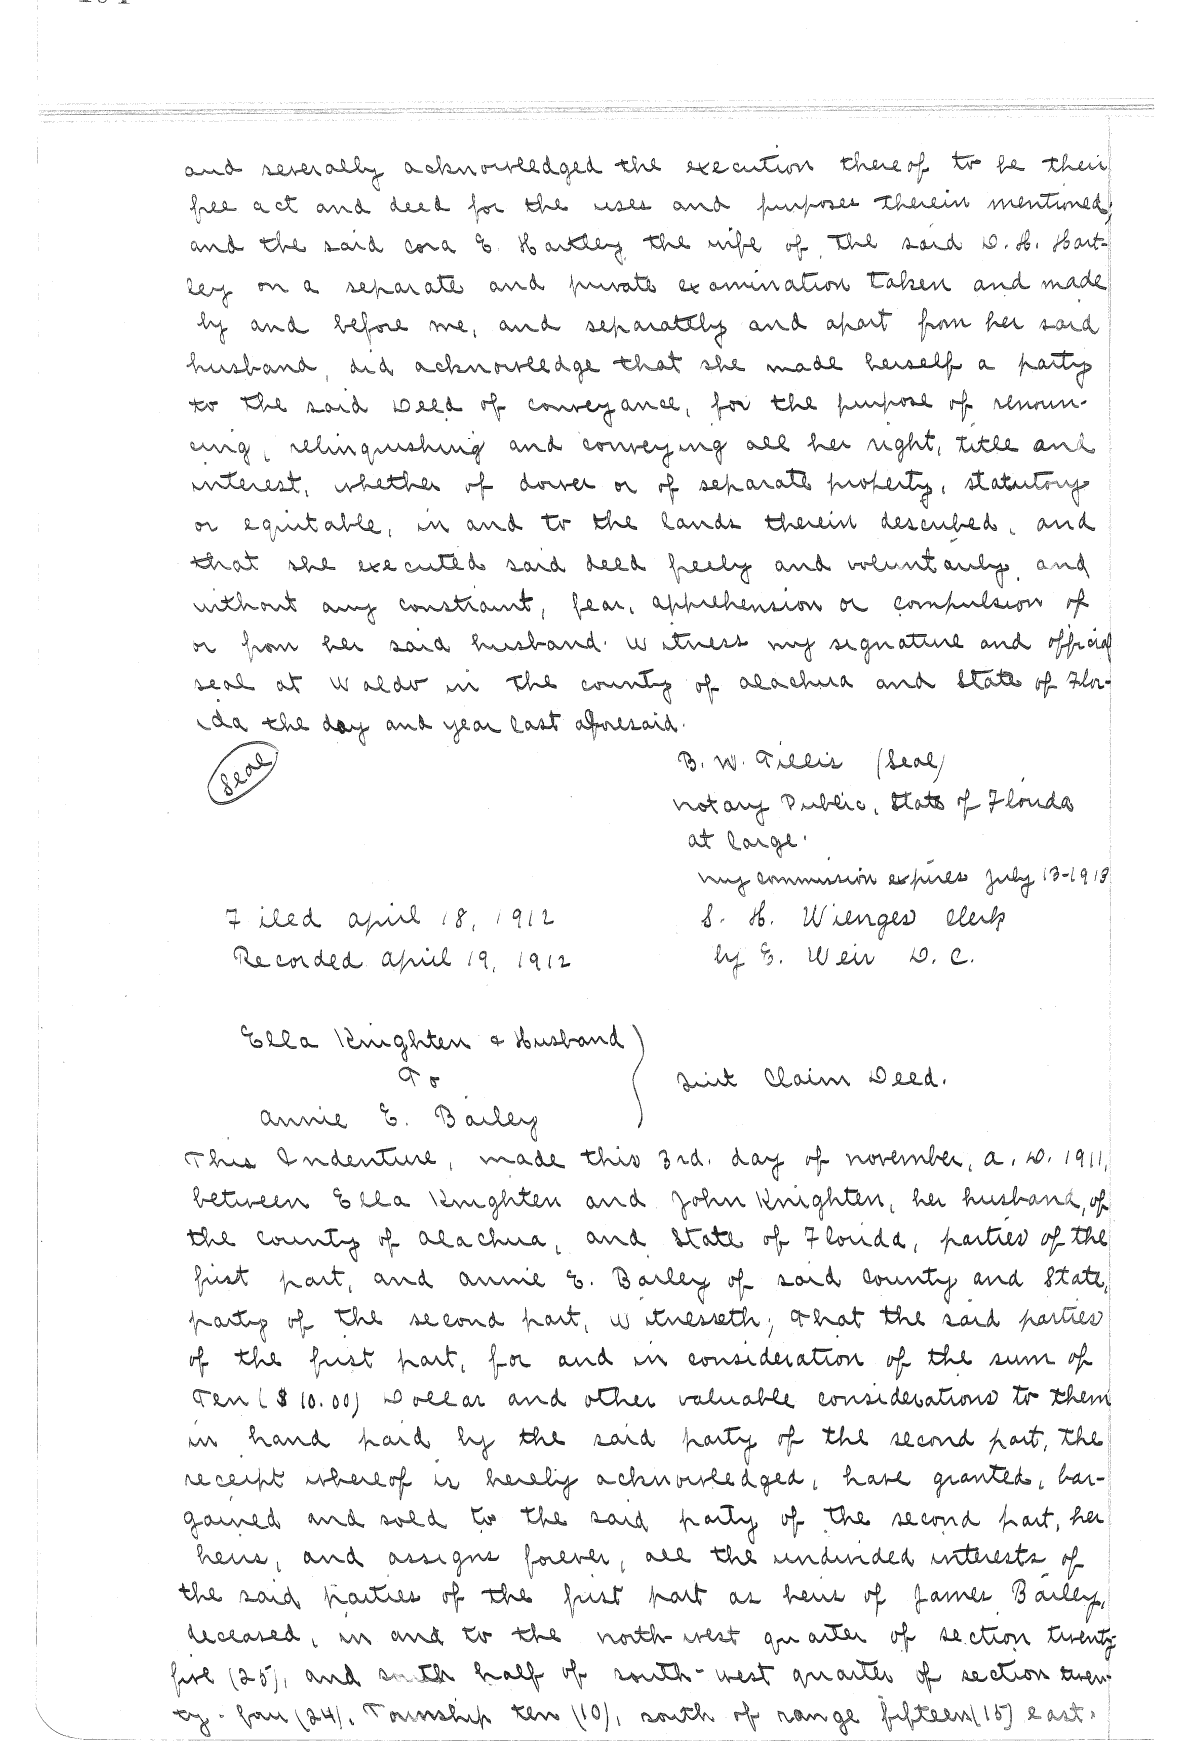 and severally acknowledged the execution thereof to be their
free act and deed for the uses and purposes therein mentioned;
and the said Cora E. Hartley the wife of the said D. H. Hart-
ley on a separate and private examination taken and made
by and before me, and separately and apart from her said
husband, did acknowledge that she made herself a party
to the said Deed of conveyance, for the purpose of renoun-
cing, relinquishing and conveying all her right, title and
interest, whether of dower or of separate property, statutory
or equitable, in and to the lands therein described, and
that she executed said deed freely and voluntarily, and
without any constraint, fear, apprehension or compulsion of
or from her said husband. Witness my signature and official
seal at Waldo in the county of Alachua and State of Flor-
ida the day and year last aforesaid.
Seal
B. W. Tillis (Seal)
Notary Public, State of Florida
at large.
My commission expires July 13-1913
Filed April 18, 1912
S. H. Wienges Clerk
Recorded April 19, 1912
by E. Weir D. C.
Ella Knighten & Husband
To
Quit Claim Deed.
Annie E. Bailey
This Indenture, made this 3rd. day of November, A. D. 1911,
between Ella Knighten and John Knighten, her husband, of
the county of Alachua, and State of Florida, parties of the
first part, and Annie E. Bailey of said county and State,
party of the second part, Witnesseth; That the said parties
of the first part, for and in consideration of the sum of
Ten ($10.00) Dollar and other valuable considerations to them
in hand paid by the said party of the second part, the
receipt whereof is hereby acknowledged, have granted, bar-
gained and sold to the said party of the second part, her
heirs, and assigns forever, all the undivided interests of
the said parties of the first part as heirs of James Bailey,
deceased, in and to the north-west quarter of section twenty
five (25), and south half of south-west quarter of section twen-
ty-four (24), Township ten (10), south of range fifteen (15) east.